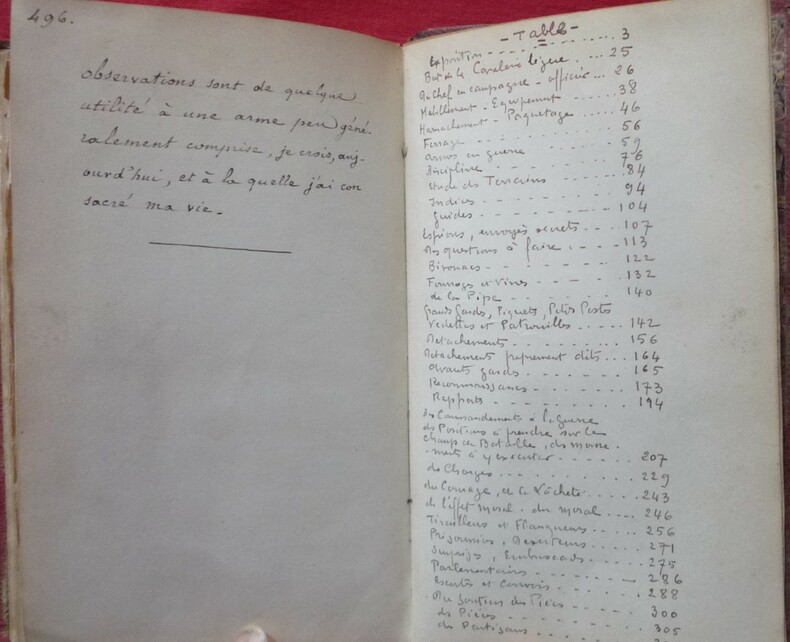 496.
observations sont de quelque
utilité à une arme peu géné-
ralement comprise, je crois, auj-
ourd'hui, et à la quelle j'ai con
sacré ma vie.
- Table -
Exposition - - - - - - - .... 3
But de la Cavalerie légère . ... 25
Du chef en campagne - officier ... 26
Habillement - Equipement - - - - - 38
Harnachement - Paquetage - - - - - 46
Ferrage - - - - - - 56
armes en guerre - - - - 59
Discipline - - - - - - 76
Etude des Terrains - - - - - 84
Indices - - - - - - 94
guides - - - - - - 104
Espions, envoyés secrets - - - - 107
Des questions à faire . - - - 113
Bivouacs - - - - - - 122
Fourrages et Vivres - - - - 132
de la Pipe - - - - - - 140
Grands Gardes, Piquets, Petits Postes
Vedettes et Patrouilles - - . . . . 142
Détachements - - - - - - 156
Détachements proprement dits . . . 164
avants gardes - - - - - - 165
Reconnaissances - - - - - - 173
Rapports - - - - - - - 194
des Commandements à la guerre
des Positions à prendre sur les
champs de Bataille, des mouve-
ments à y exécuter - - - - - - 207
des Charges - - - - - - 229
du Courage, et de la Lâcheté . . . . 243
de l'effet moral - du moral . . . . 246
Tirailleurs et Flanqueurs . . . . . 256
Prisonniers, Déserteurs . . . . . 271
Surprises, Embuscades . . . . . 275
Parlementaires - - - - - - 286
Escortes et Convois - - - - - 288
Du Soutien des Pièces - - - - 300
des Pièces - - - - - - 305
des Partisans